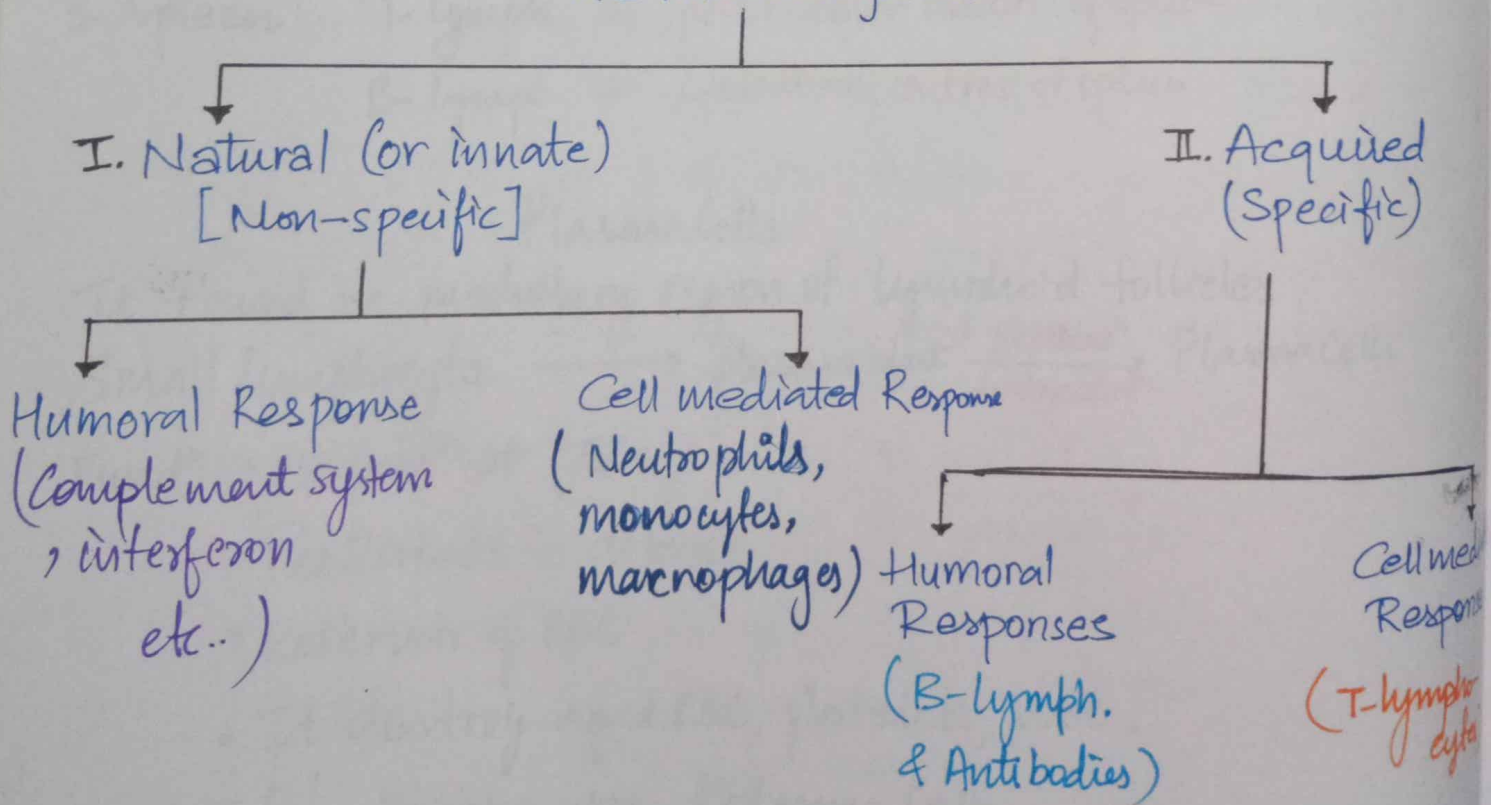 I. Natural (or innate)
[Non-specific]
II. Acquired
(Specific)
Humoral Response
(Complement system
, interferon
etc..)
Cell mediated Response
(Neutrophils,
monocytes,
marcnophages)
Humoral
Responses
(B-lymph.
& Antibodies)
Cell med
Respon
(T-lympho
cytes